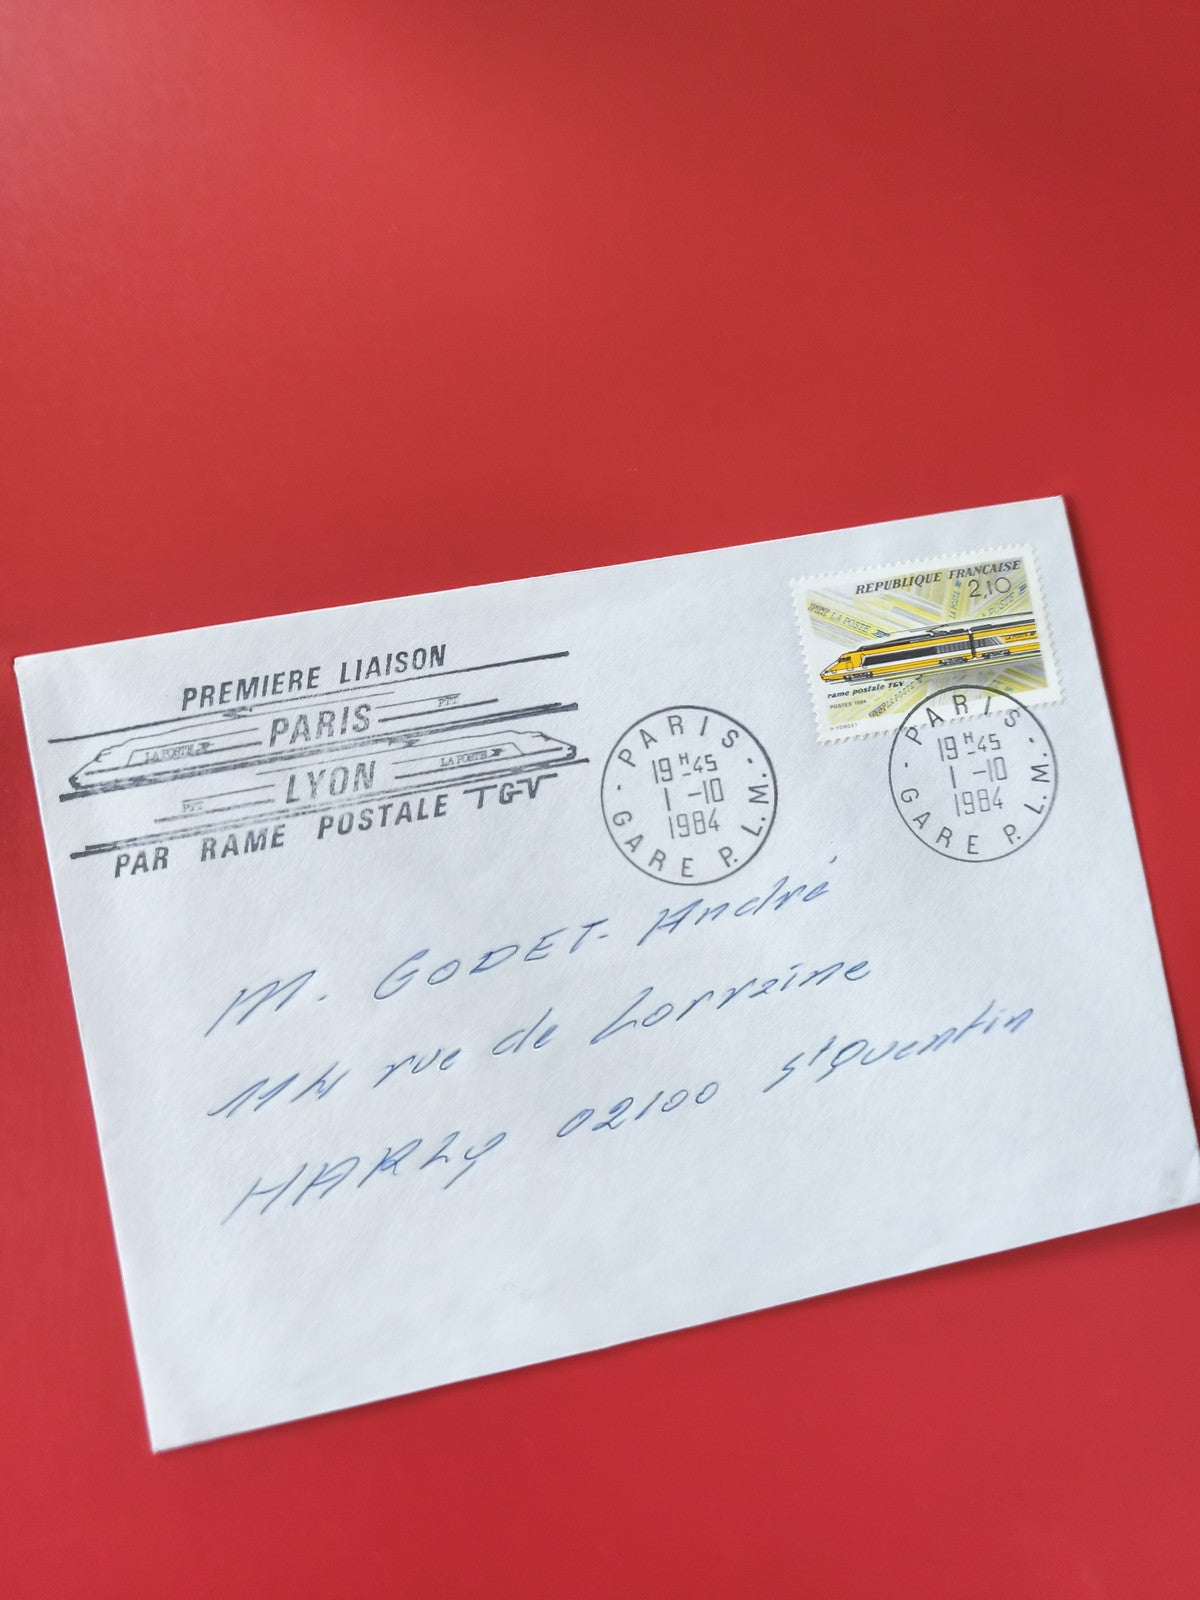 PREMIERE LIAISON
PARIS
PTT
LA POSTE
LYON
LA POSTE
PTT
PAR RAME POSTALE TGV
PARIS
19H45
1-10
1984
GARE P.L.M.
REPUBLIQUE FRANÇAISE
2,10
LA POSTE
LA POSTE
POSTES
rame postale TGV
LA POSTE
POSTES 1984
PARIS
19H45
1-10
1984
GARE P.L.M.
M. GODET. André
114 rue de Lorraine
HARLY 02100 St Quentin